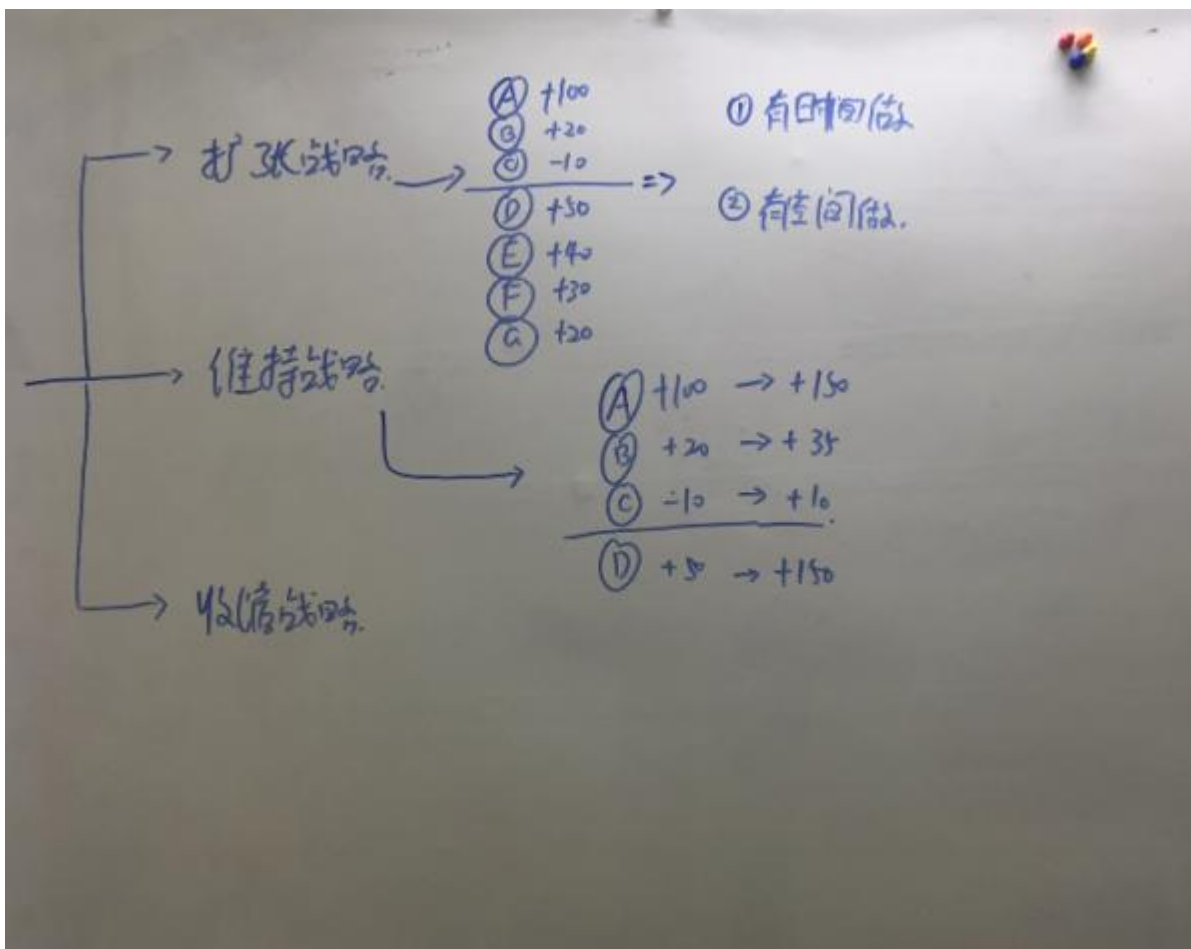 扩张战略.
Ⓐ +100
Ⓑ +20
Ⓒ -10
Ⓓ +50
Ⓔ +40
Ⓕ +30
Ⓖ +20
=>
① 有时间做
② 有空间做.
维持战略
Ⓐ +100 → +150
Ⓑ +20 → +35
Ⓒ -10 → +10.
Ⓓ +50 → +150
收缩战略.